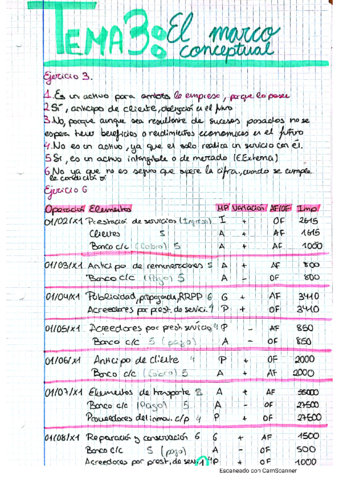 TEMA 3: El marco
conceptual
Ejercicio 3.
1. Es un activo para ambos la empresa, porque lo posee
2. Sí, anticipo de cliente, obligación en el futuro
3. No, porque aunque sea resultante de sucesos pasados no se
espera tener beneficios o rendimientos económicos en el futuro
4. No es un activo, ya que el solo realiza un servicio con él.
5. Sí, es un activo intangible o de mercado (Externa)
6. No ya que no es seguro que supere la cifra, cuando se cumpla
la condición sí
Ejercicio 6
Operación Elementos MP Variación AF/OF Imp
01/02/X1 Prestación de servicios (Ingreso) I + OF 2645
Clientes 5 A + AF 1645
Banco c/c (Cobro) 5 A + AF 1000
01/03/X1 Anticipo de remuneraciones 5 A + AF 800
Banco c/c (Pago) 5 A - OF 800
01/04/X1 Publicidad, propaganda, RRPP 6 G + AF 3440
Acreedores por prest. de servici. 4 P + OF 3440
01/05/X1 Acreedores por prest. servicio 4 P - AF 850
Banco c/c 5 (pago) A - OF 850
01/06/X1 Anticipo de cliente 4 P + OF 2000
Banco c/c (Cobro) 5 A + AF 2000
01/07/X1 Elementos de transporte 2 A + AF 55000
Banco c/c (Pago) 5 A - OF 27500
Proveedores del inmov. c/p 4 P + OF 27500
01/08/X1 Reparación y conservación 6 G + AF 1500
Banco c/c 5 (pago) A - OF 500
Acreedores por prest. de serv. 4 P + OF 1000
1
Escaneado con CamScanner